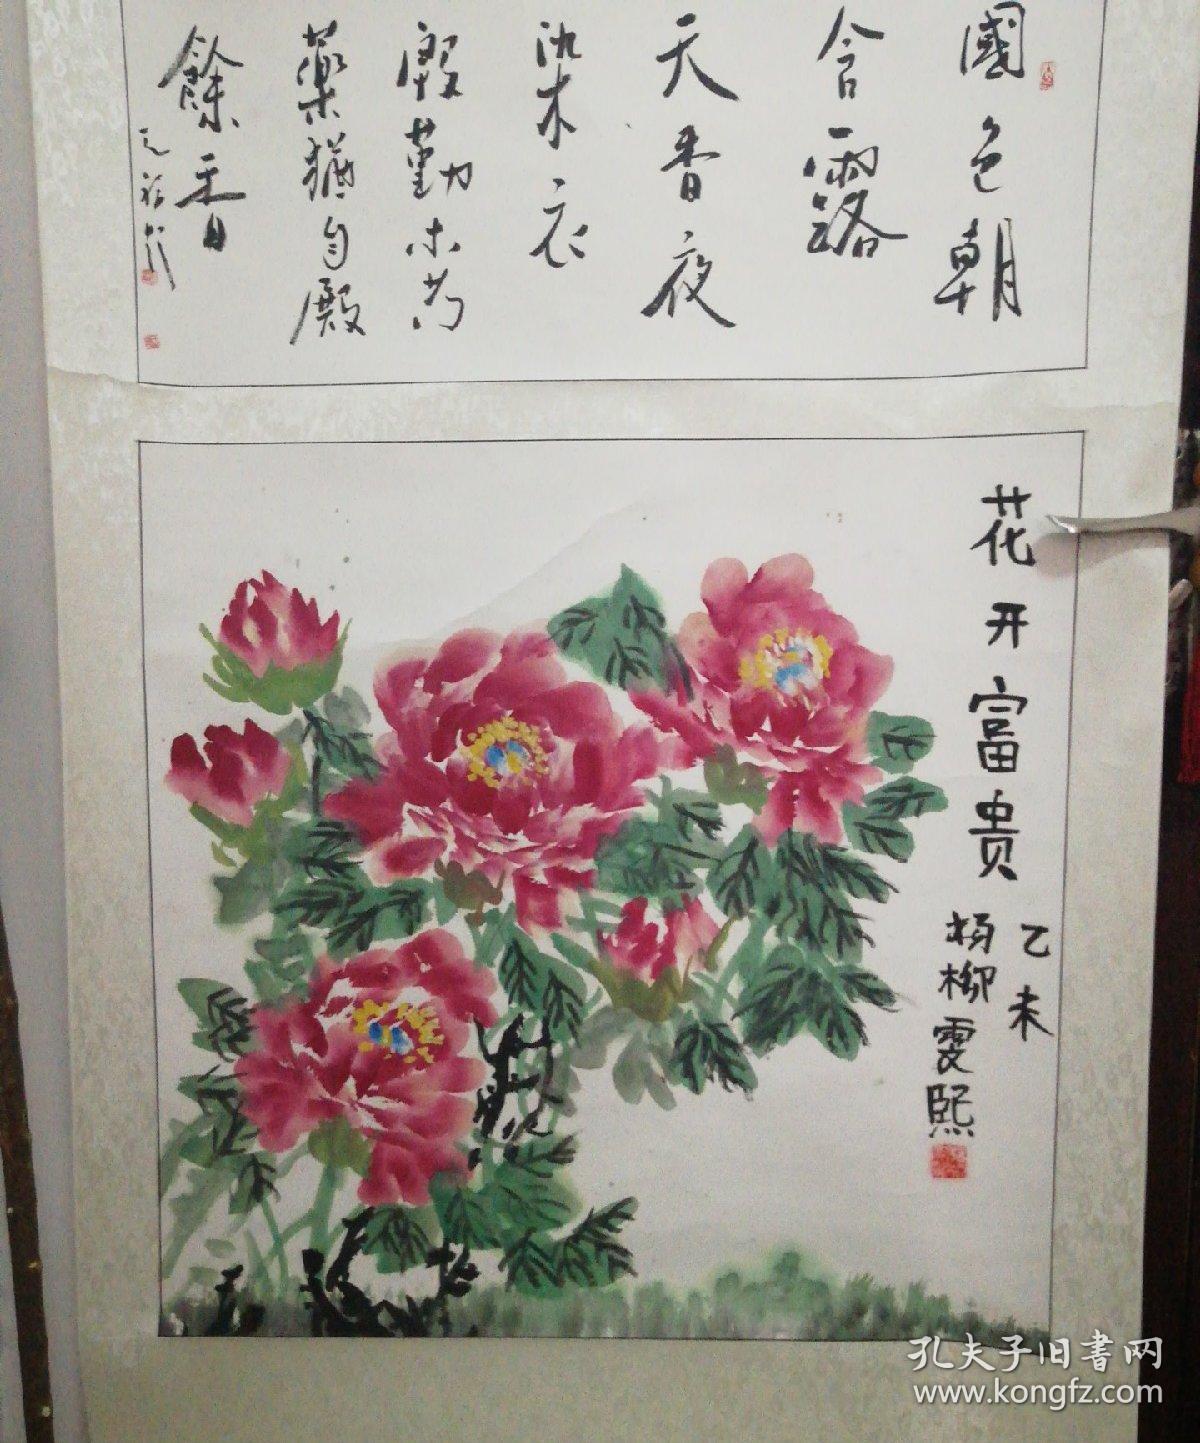 國色朝
含露
天香夜
染衣
殷勤木芍
藥猶自殿
餘香
花开富贵
乙未
杨柳雯熙
孔夫子旧書网
www.kongfz.com